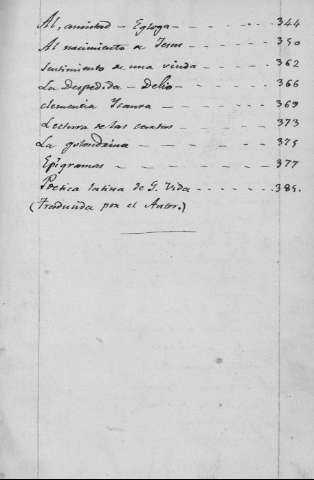 Al, amistad - Egloga - - - - - - - - 344
Al nacimiento de Jesus - - - - - 350
Sentimiento de una viuda - - - - - 362
La Despedida - Delio - - - - - - 366
Clemencia Isaura - - - - - - - - 369
Lectura de las cartas - - - - - - 373
La golondrina - - - - - - - - - 375
Epigramas - - - - - - - - - - 377
Poetica latina de G. Vida - - - - - 385.
(Traducida por el Autor.)